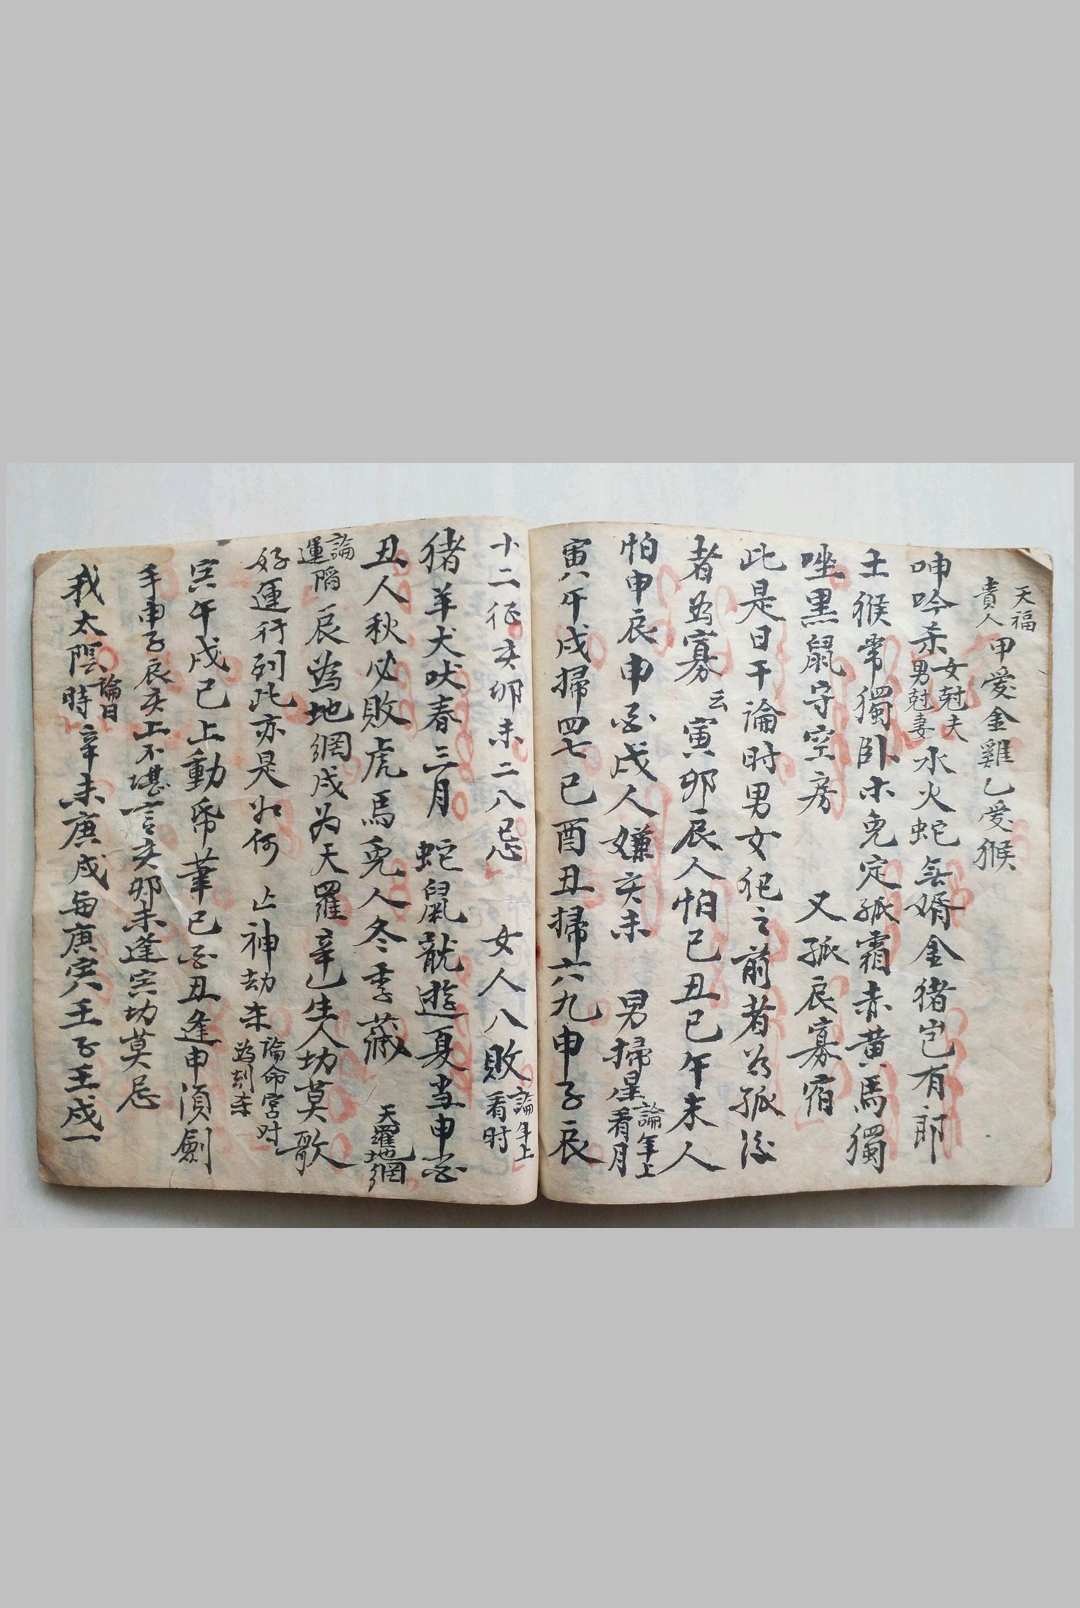 天福貴人 甲愛金雞乙愛猴
呻吟杀 女尅夫男尅妻 水火蛇無婿金猪岂有郎
土猴常獨卧木兎定孤霜赤黄馬獨
坐黑鼠守空房 又孤辰寡宿
此是日干論時男女犯之前者为孤後
者为寡云寅卯辰人怕巳丑巳午未人
怕申辰申酉戌人嫌亥未 男掃星論年上看月
寅午戌掃四七巳酉丑掃六九申子辰
十二征亥卯未二八忌 女人八敗論年上看时
猪羊犬吠春三月蛇鼠龍遊夏当申酉
丑人秋必敗虎馬兎人冬季藏 天羅地網
論運限 辰為地網戌为天羅 生人切莫歌
好運行列此亦是如何 亡神劫杀 論命宫对為刻杀
寅午戌巳上動 筆巳酉丑逢申須劍
手申子辰亥上不堪言亥卯未逢寅切莫忌
我太陰 論日時 辛未庚戌每庚寅壬子壬戌一